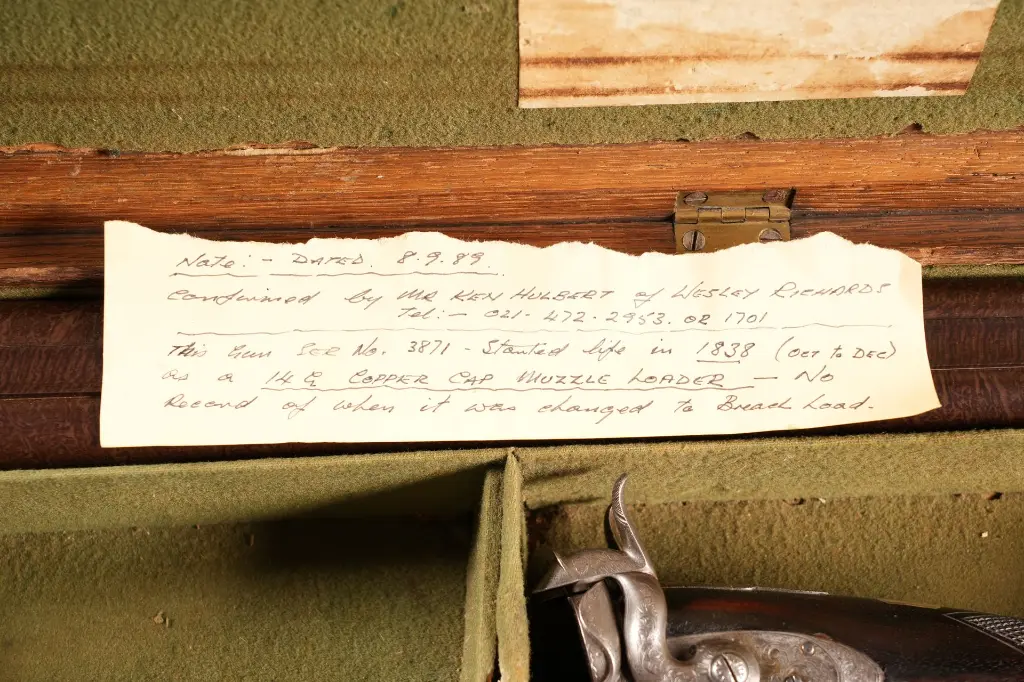 Note:- DATED. 8.9.89.
confirmed by MR KEN HULBERT of WESLEY RICHARDS
Tel:- 021-472-2953. OR 1701
This Gun SER No. 3871 - Started life in 1838 (OCT to DEC)
as a 14 G COPPER CAP MUZZLE LOADER - No
Record of when it was changed to Breach Load.